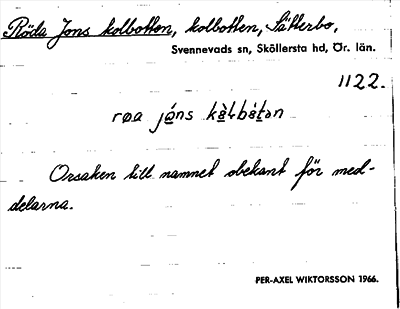 Röda Jons kolbotten, kolbotten, Sätterbo,
Svennevads sn, Sköllersta hd, Ör. län.
1122.
Orsaken till namnet obekant för med-
delarna.
PER-AXEL WIKTORSSON 1966.